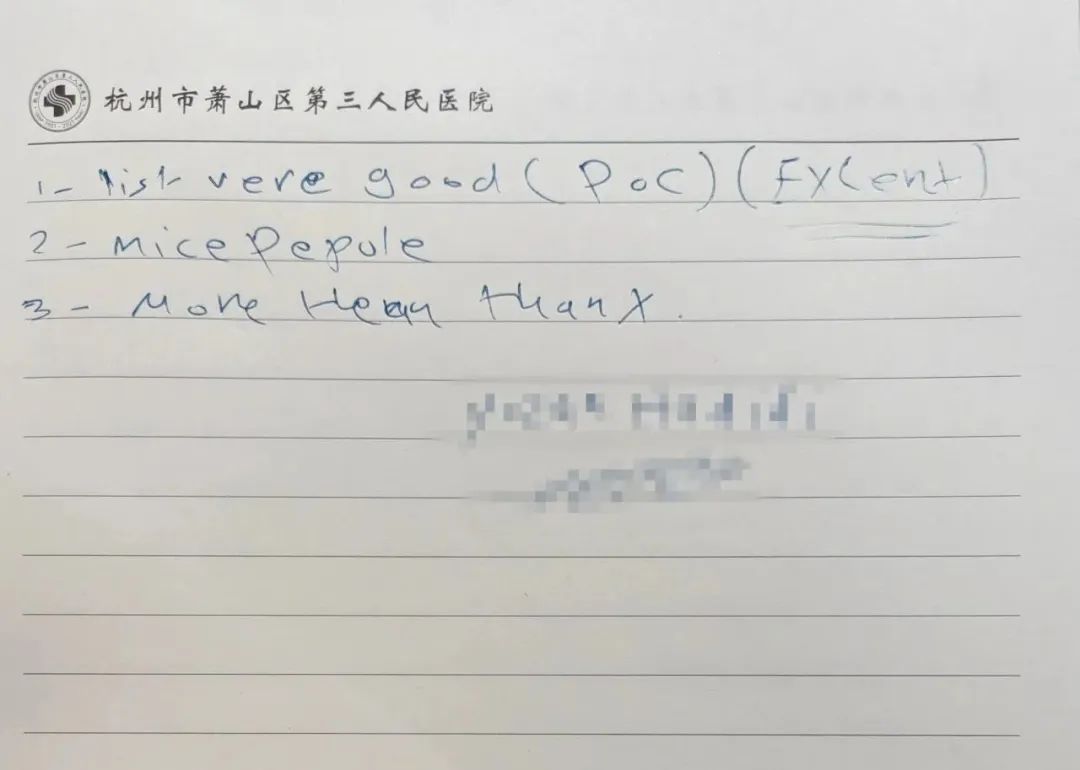 杭州市萧山区第三人民医院
1- vere good (Doc) (EXCent)
2- Mice Pepule
3- More than X.